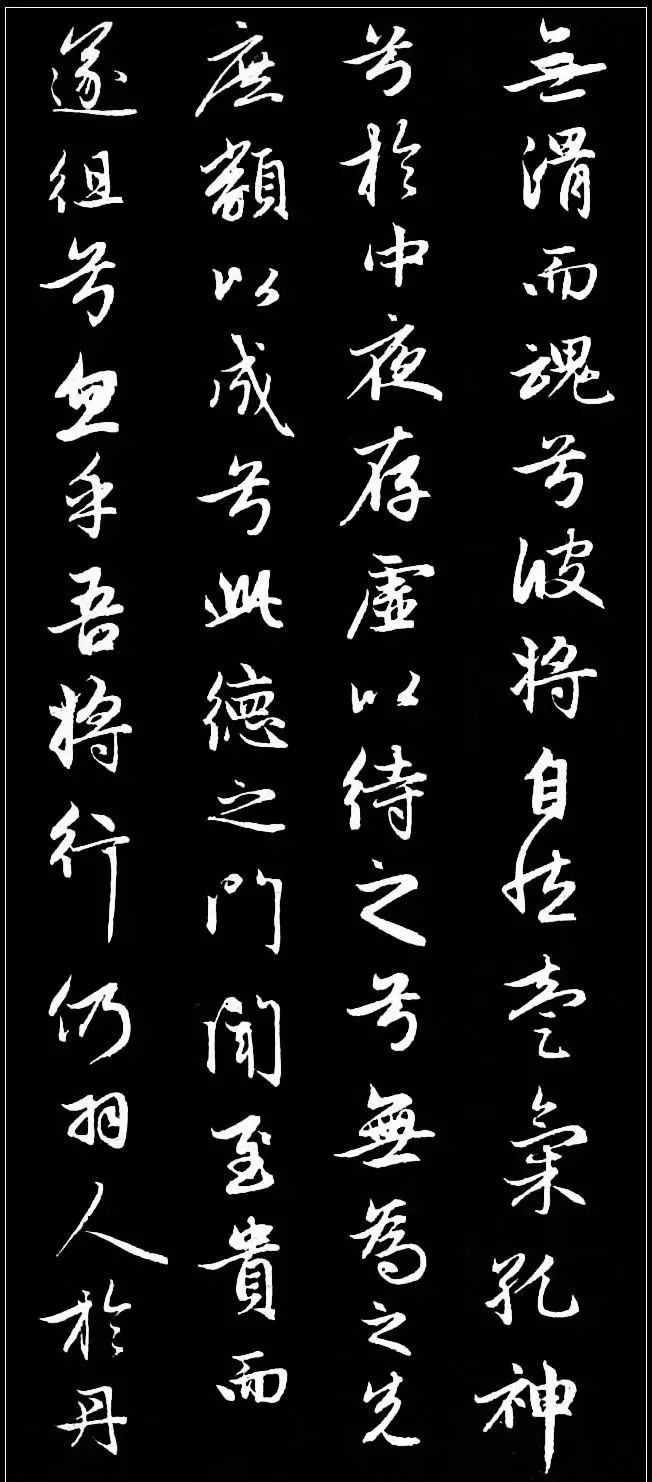 無滑而魂兮彼將自然壹氣孔神
兮於中夜存虛以待之兮無為之先
庶類以成兮此德之門聞至貴而
遂徂兮忽乎吾將行仍羽人於丹